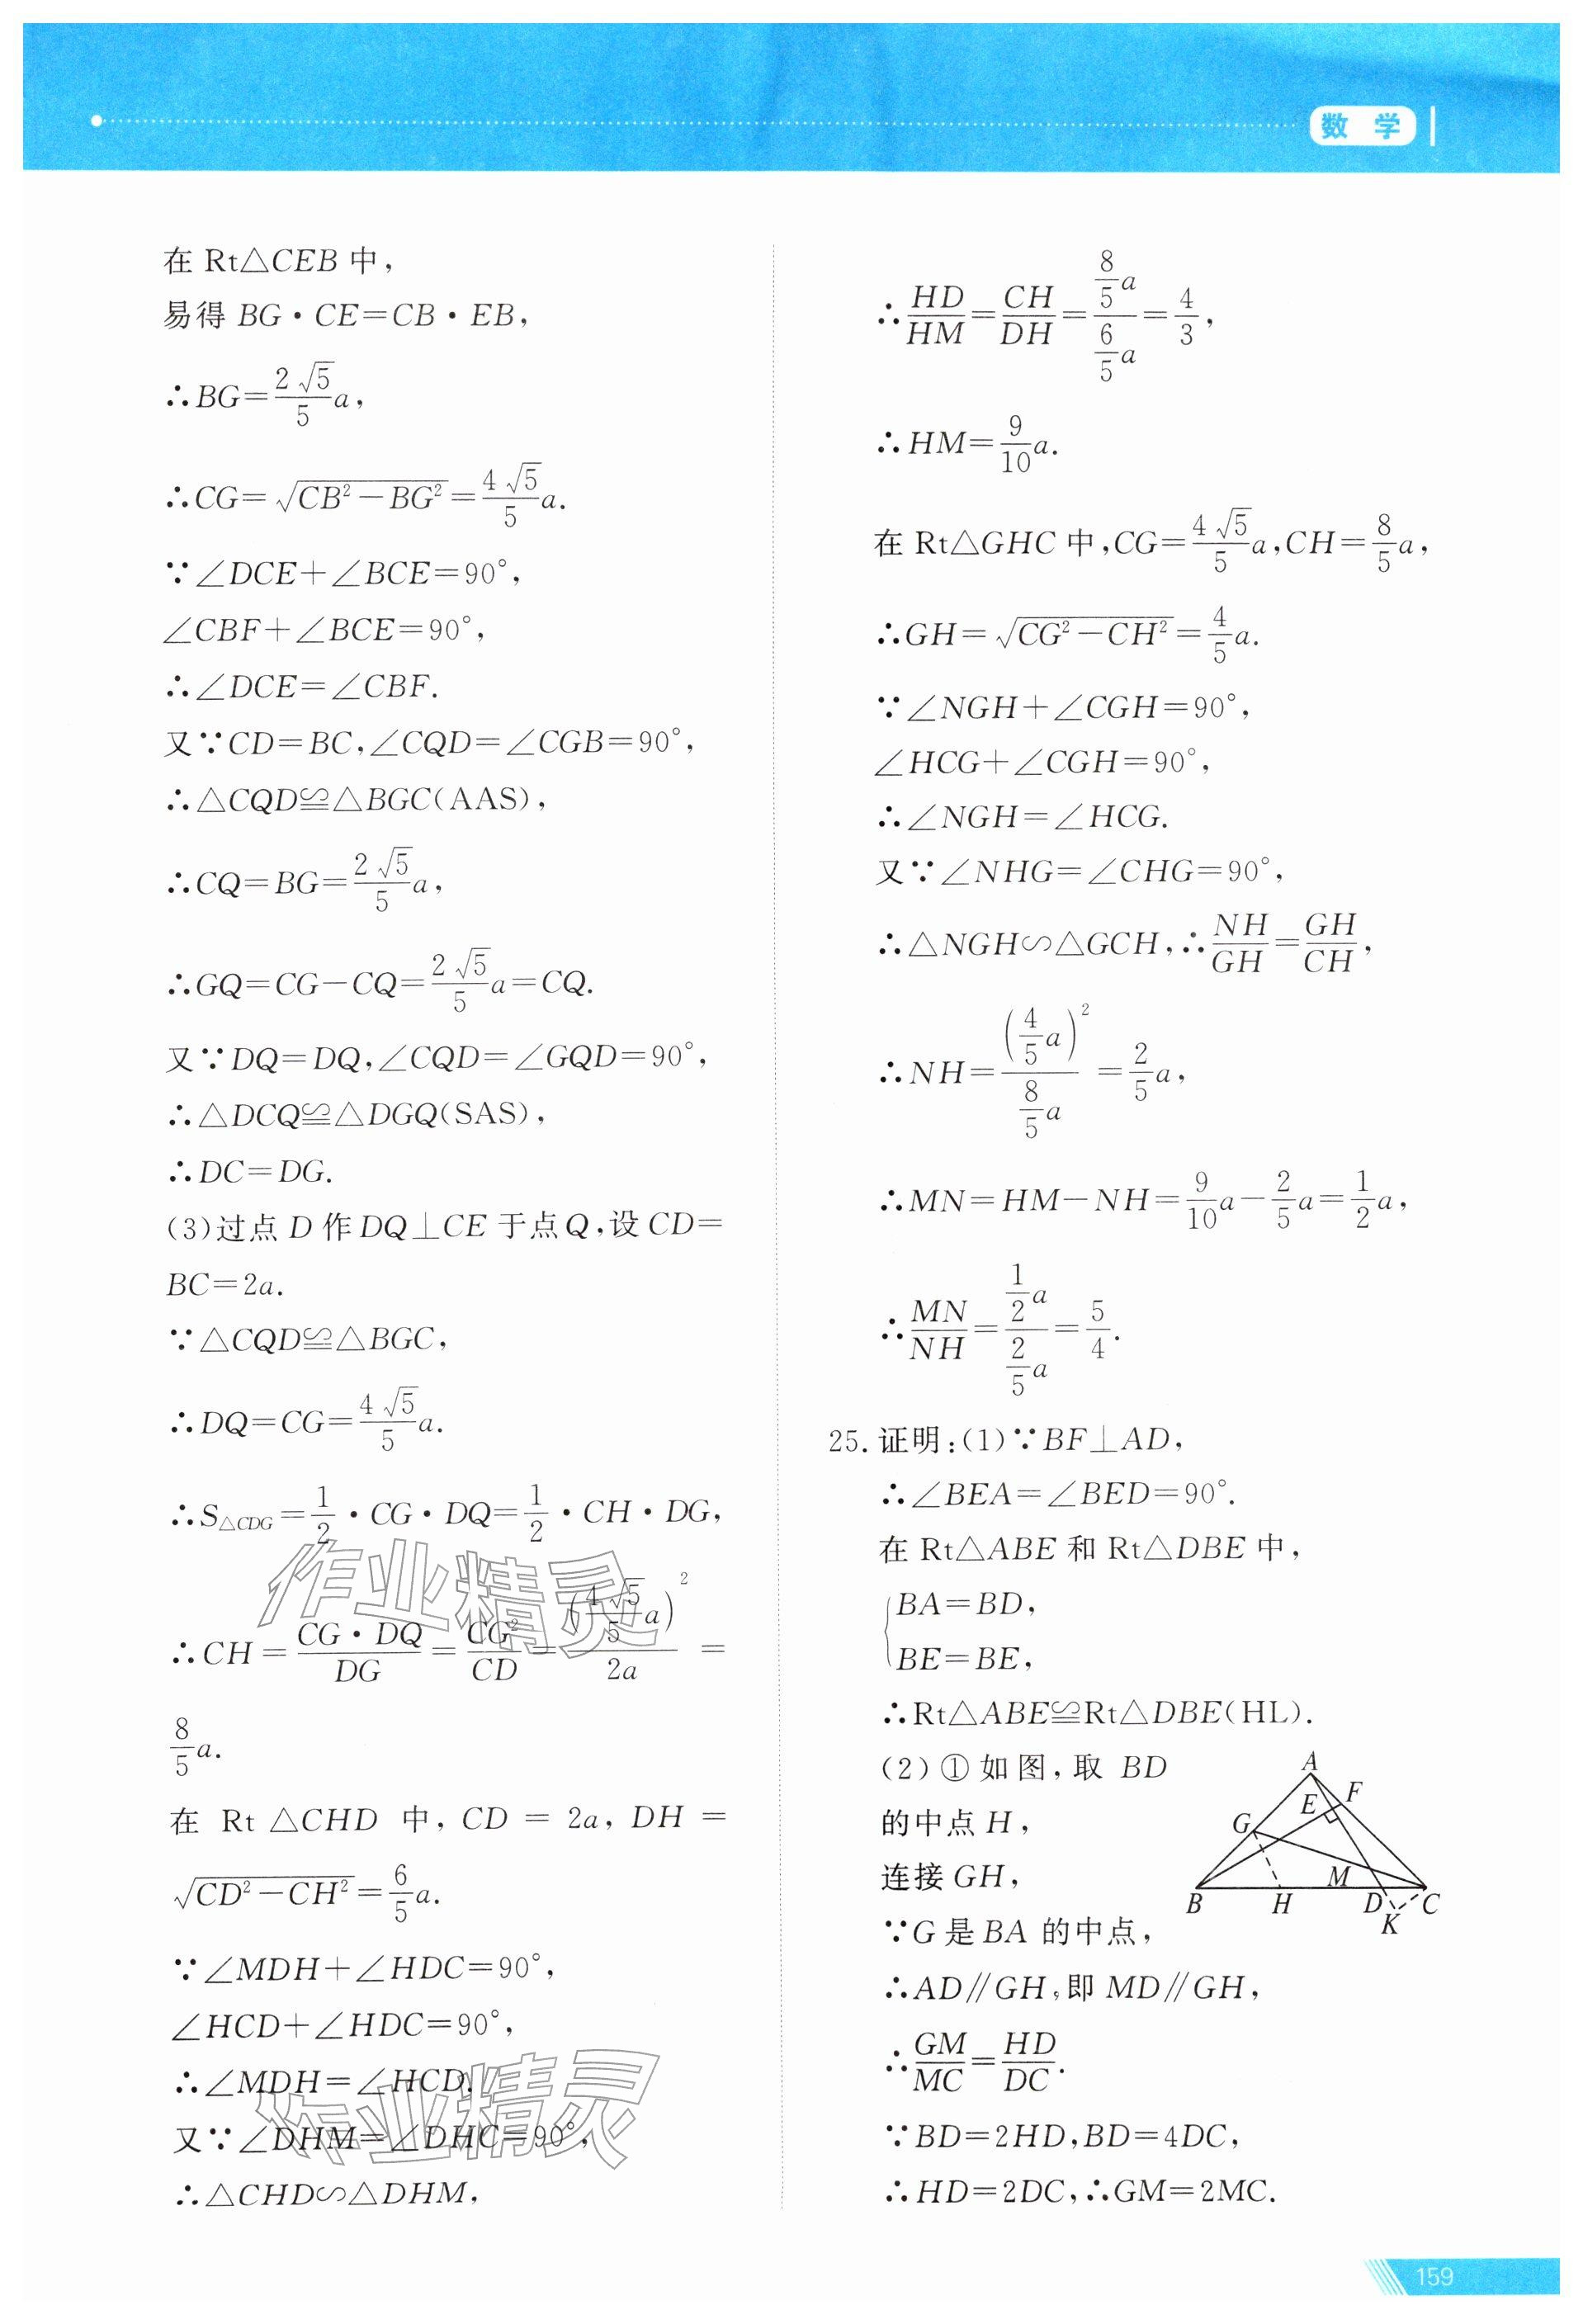 数 学
在 Rt△CEB 中，
易得 BG·CE=CB·EB，
∴BG=\frac{2\sqrt{5}}{5}a，
∴CG=\sqrt{CB²-BG²}=\frac{4\sqrt{5}}{5}a.
∵∠DCE+∠BCE=90°，
∠CBF+∠BCE=90°，
∴∠DCE=∠CBF.
又∵CD=BC,∠CQD=∠CGB=90°，
∴△CQD≌△BGC(AAS)，
∴CQ=BG=\frac{2\sqrt{5}}{5}a，
∴GQ=CG-CQ=\frac{2\sqrt{5}}{5}a=CQ.
又∵DQ=DQ,∠CQD=∠GQD=90°，
∴△DCQ≌△DGQ(SAS)，
∴DC=DG.
(3)过点 D 作 DQ⊥CE 于点 Q,设 CD=
BC=2a.
∵△CQD≌△BGC，
∴DQ=CG=\frac{4\sqrt{5}}{5}a.
∴S△CDG=\frac{1}{2}·CG·DQ=\frac{1}{2}·CH·DG，
∴CH=\frac{CG·DQ}{DG}=\frac{CG²}{CD}=\frac{(\frac{4\sqrt{5}}{5}a)²}{2a}=
\frac{8}{5}a.
在 Rt △CHD 中, CD = 2a, DH =
\sqrt{CD²-CH²}=\frac{6}{5}a.
∵∠MDH+∠HDC=90°，
∠HCD+∠HDC=90°，
∴∠MDH=∠HCD.
又∵∠DHM=∠DHC=90°，
∴△CHD∽△DHM，
∴\frac{HD}{HM}=\frac{CH}{DH}=\frac{\frac{8}{5}a}{\frac{6}{5}a}=\frac{4}{3}，
∴HM=\frac{9}{10}a.
在 Rt△GHC 中,CG=\frac{4\sqrt{5}}{5}a,CH=\frac{8}{5}a，
∴GH=\sqrt{CG²-CH²}=\frac{4}{5}a.
∵∠NGH+∠CGH=90°，
∠HCG+∠CGH=90°，
∴∠NGH=∠HCG.
又∵∠NHG=∠CHG=90°，
∴△NGH∽△GCH,∴\frac{NH}{GH}=\frac{GH}{CH}，
∴NH=\frac{(\frac{4}{5}a)²}{\frac{8}{5}a}=\frac{2}{5}a，
∴MN=HM-NH=\frac{9}{10}a-\frac{2}{5}a=\frac{1}{2}a，
∴\frac{MN}{NH}=\frac{\frac{1}{2}a}{\frac{2}{5}a}=\frac{5}{4}.
25. 证明:(1)∵BF⊥AD，
∴∠BEA=∠BED=90°.
在 Rt△ABE 和 Rt△DBE 中，
{BA=BD，
BE=BE，
∴Rt△ABE≌Rt△DBE(HL).
(2)①如图,取 BD
的中点 H，
连接 GH，
∵G 是 BA 的中点，
A
F
E
G
M
B
H
D
C
K
∴AD∥GH,即 MD∥GH，
∴\frac{GM}{MC}=\frac{HD}{DC}.
∵BD=2HD,BD=4DC，
∴HD=2DC,∴GM=2MC.
作业精灵
作业精灵
159